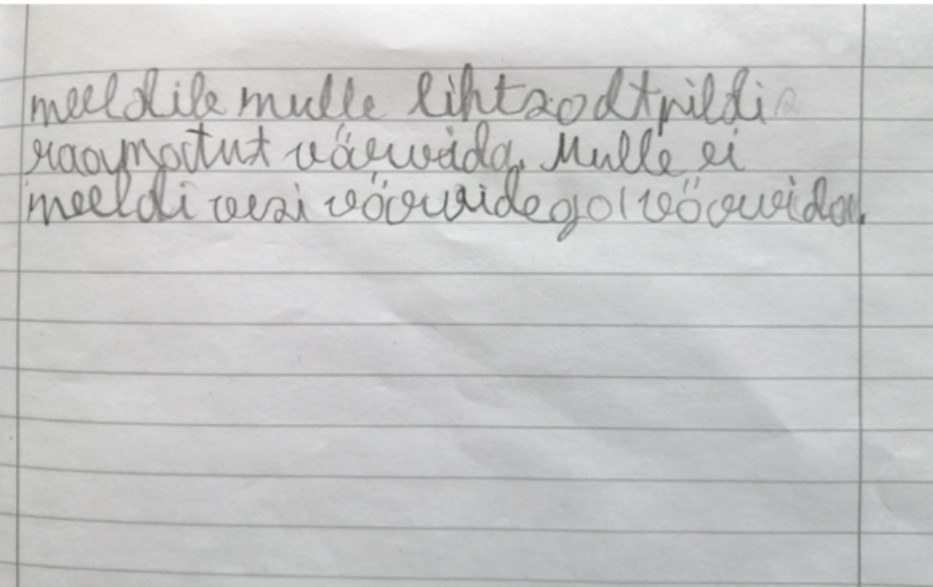 meeldile mulle lihtsadtpildi
raaymatut värvida. Mulle ei
meeldi vesi väärvidega väärvida.